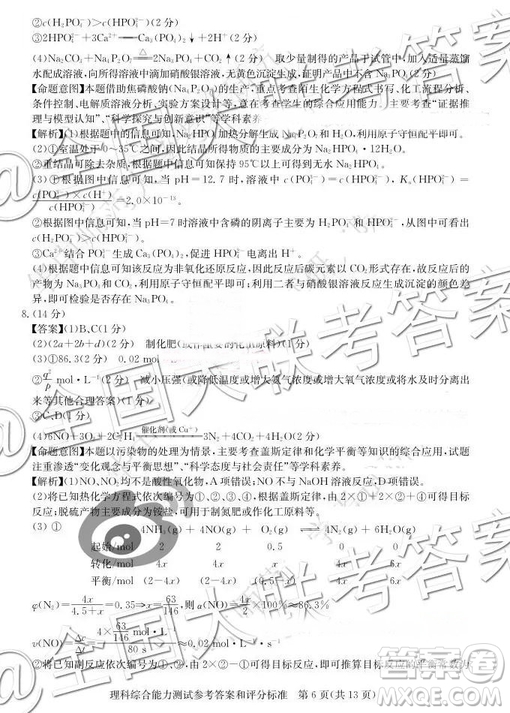 ②c(H₂PO₄⁻)>c(HPO₄²⁻)(2分)
③2HPO₄²⁻+3Ca²⁺══Ca₃(PO₄)₂↓+2H⁺(2分)
(4)Na₂CO₃+Na₄P₂O₇══2Na₃PO₄+CO₂↑(2分) 取少量制得的产品于试管中,加入适量蒸馏
水配成溶液,向所得溶液中滴加硝酸银溶液,无黄色沉淀生成,证明产品中不含Na₃PO₄(2分)
【命题意图】本题借助焦磷酸钠(Na₄P₂O₇)的生产,重点考查陌生化学方程式书写、化工流程分析、
条件控制、电解质溶液分析、实验方案设计等,意在考查学生的综合应用能力。主要考查“证据推
理与模型认知”、“科学探究与创新意识”等学科素养。
【解析】(1)根据题中的信息可知Na₂HPO₄加热分解生成Na₄P₂O₇和H₂O,利用原子守恒配平即可。
(2)①室温处于0~35℃之间,因此结晶所得物质的主要成分为Na₂HPO₄·12H₂O。
②重结晶可除去杂质,根据图中信息可知保持95℃以上可得到无水Na₂HPO₄。
(3)①根据图中信息可知,当pH=12.7时,溶液中c(PO₄³⁻)=c(HPO₄²⁻),Kₐ(HPO₄²⁻)=
c(PO₄³⁻)×c(H⁺)/c(HPO₄²⁻)=2.0×10⁻¹³。
②根据图中信息可知,当pH=7时溶液中含磷的阴离子主要为H₂PO₄⁻和HPO₄²⁻,从图中可看出
c(H₂PO₄⁻)>c(HPO₄²⁻)。
③Ca²⁺结合PO₄³⁻生成Ca₃(PO₄)₂,促进HPO₄²⁻电离出H⁺。
(4)根据题中信息可知该反应为非氧化还原反应,因此反应后碳元素以CO₂形式存在,故反应产物
为Na₃PO₄和CO₂,利用原子守恒配平即可;利用二者与硝酸银溶液反应生成沉淀的颜色差
异,即可检验是否存在Na₃PO₄。
8.(14分)
【答案】(1)B、C(1分)
(2)(2a+2b+d)(2分) 制化肥(或作重要的化工原料)(1分)
(3)①86.3(2分) 0.02 mol
②q²/p mol·L⁻¹(2分) 减小压强(或降低温度或增大氨气浓度或增大氧气浓度或将水及时分离出
来等其他合理答案)(1分)
③C、D(1分)
(4)6NO+3O₂+2C₂H₄ 催化剂(或Cu⁺) 3N₂+4CO₂+4H₂O(2分)
【命题意图】本题以污染物的处理为情景,主要考查盖斯定律和化学平衡等知识的综合应用,试题
注重渗透“变化观念与平衡思想”、“科学态度与社会责任”等学科素养。
【解析】(1)NO、NO₂均不是酸性氧化物,A项错误;NO不与NaOH溶液反应,D项错误。
(2)将已知热化学方程式依次编号为①、②、③、④,根据盖斯定律,由2×①+2×②+④可得目标
反应;脱硫产物主要成分为铵盐,可用于制氮肥或作化工原料等。
(3)① 4NH₃(g)+4NO(g)+O₂(g)⇌4N₂(g)+6H₂O(g)
起始/mol 2 2 0.5 0 0
转化/mol 4x 4x x 4x 6x
平衡/mol (2−4x) (2−4x) (0.5−x) 4x 6x
φ(N₂)=4x/(4.5+x)=0.35⇒x=63/146,则α(NO)=4x/2×100%≈86.3%
v(NO)=(4×63/146 mol·L⁻¹)/80 s≈0.02 mol·L⁻¹·s⁻¹
②将已知副反应依次编号为①、②,根据盖斯定律,由2×②−①可得目标反应,故反应的平衡常数为
理科综合能力测试参考答案和评分标准 第6页(共13页)
@全国大联考答案